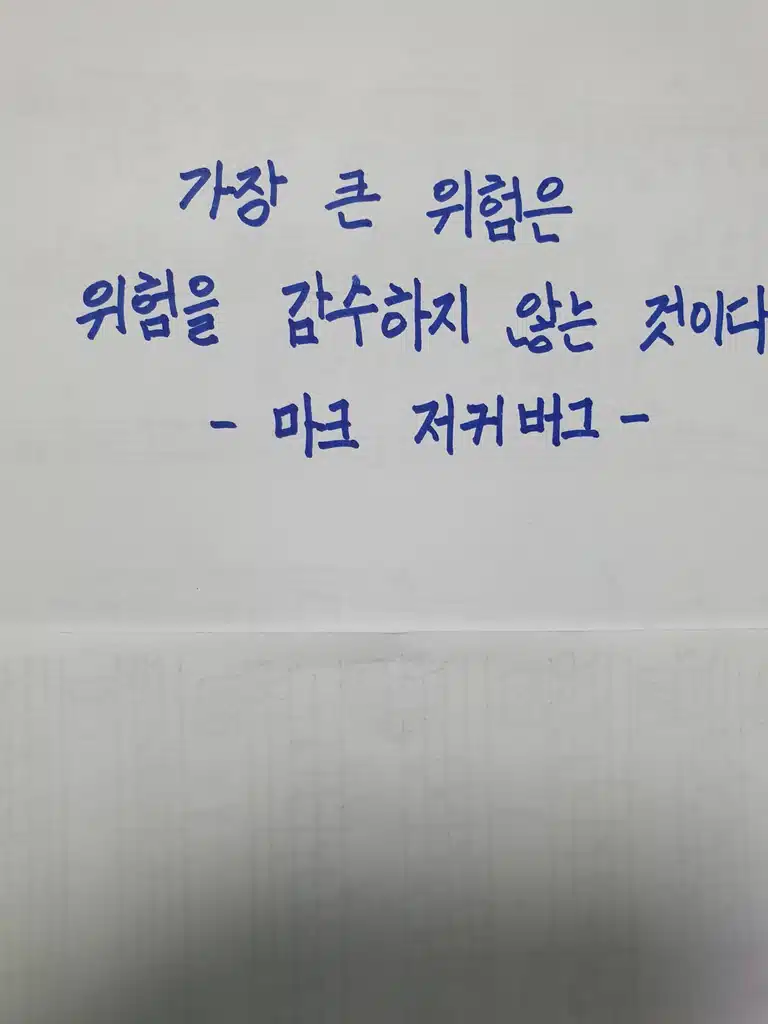 가장 큰 위험은
위험을 감수하지 않는 것이다
- 마크 저커버그 -